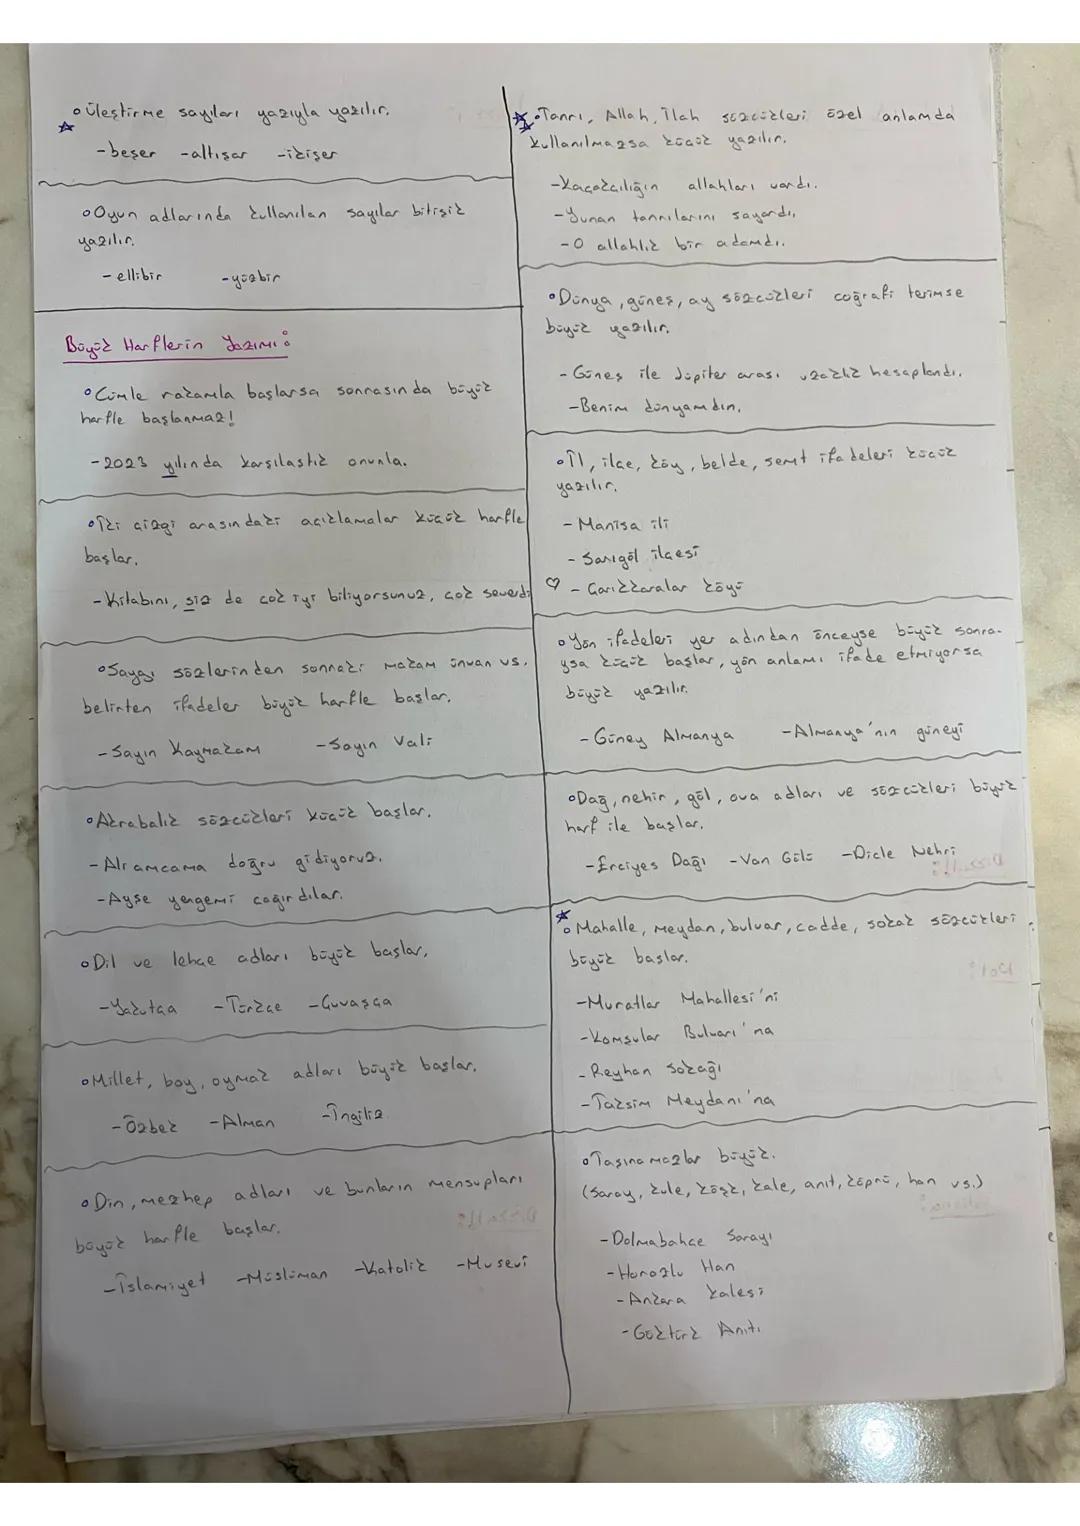 Üleştirme sayıları yazıyla yazılır.
-beşer -altışar -ikişer
Oyun adlarında kullanılan sayılar bitişik
yazılır.
-ellibir -yüzbir
Büyük Harflerin Yazımı:
Cümle rakamla başlarsa sonrasında büyük
harfle başlanmaz!
-2023 yılında karşılaştık onunla.
İki çizgi arasındaki açıklamalar küçük harfle
başlar.
-Kitabını, siz de çok iyi biliyorsunuz, çok severdi
Saygı sözlerinden sonraki makam ünvan vs.
belirten ifadeler büyük harfle başlar.
-Sayın Kaymakam -Sayın Vali
Akrabalık sözcükleri küçük başlar.
-Ali amcama doğru gidiyoruz.
-Ayşe yengemi çağırdılar.
Dil ve lehçe adları büyük başlar.
-Yakutça -Türkçe -Çuvaşça
Millet, boy, oymak adları büyük başlar.
-Özbek -Alman -İngiliz
Din, mezhep adları ve bunların mensupları
büyük harfle başlar.
-İslamiyet -Müslüman -Katolik -Musevi
Tanrı, Allah, İlah sözcükleri özel anlamda
kullanılmazsa küçük yazılır.
-Kaçakçılığın allahları vardı.
-Yunan tanrılarını sayardı,
-O allahlık bir adamdı.
Dünya, güneş, ay sözcükleri coğrafi terimse
büyük yazılır.
-Güneş ile Jüpiter arası uzaklık hesaplandı.
-Benim dünyamdın.
İl, ilçe, köy, belde, semt ifadeleri küçük
yazılır.
-Manisa ili
-Sarıgöl ilçesi
♡ -Çarıkkaralar köyü
Yön ifadeleri yer adından önceyse büyük sonra-
ysa küçük başlar, yön anlamı ifade etmiyorsa
büyük yazılır.
-Güney Almanya -Almanya'nın güneyi
Dağ, nehir, göl, ova adları ve sözcükleri büyük
harf ile başlar.
-Erciyes Dağı -Van Gölü -Dicle Nehri
Mahalle, meydan, bulvar, cadde, sokak sözcükleri
büyük başlar.
-Muratlar Mahallesi'ni
-Komşular Bulvarı'na
-Reyhan Sokağı
-Taksim Meydanı'na
Taşınamazlar büyük.
(Saray, kule, köşk, kale, anıt, köprü, han vs.)
-Dolmabahçe Sarayı
-Horozlu Han
-Ankara Kalesi
-Göktürk Anıtı